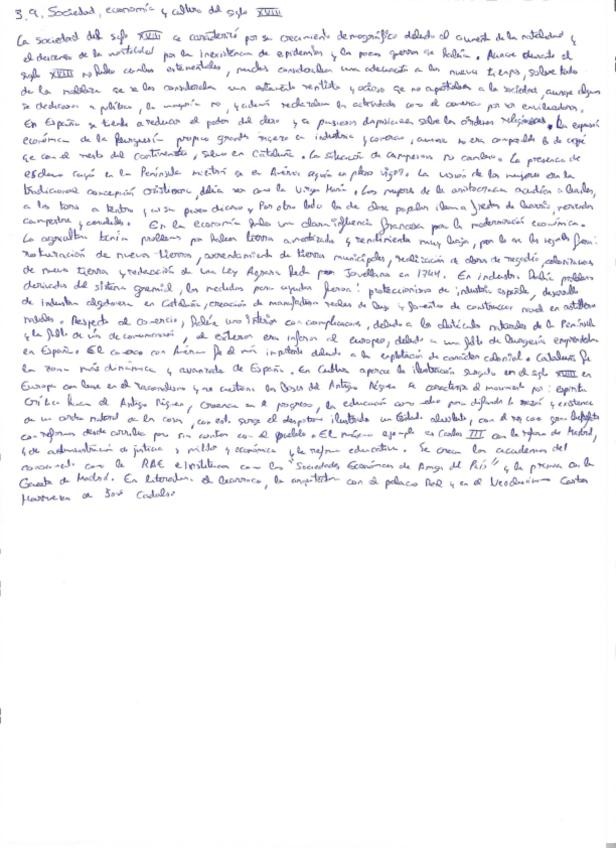 3.9. Sociedad, economía y cultura del siglo XVIII
La sociedad del siglo XVIII se caracterizó por su crecimiento demográfico debido al aumento de la natalidad y
el descenso de la mortalidad por la inexistencia de epidemias y las pocas guerras que habían. Aunque durante el
siglo XVIII no hubo cambios estamentales, muchos consideraban una adecuación a los nuevos tiempos, sobre todo
de la nobleza que se les consideraba un estamento rentista y ocioso que no aportaba a la sociedad, aunque algunos
se dedicaron a política, la mayoría no, y además rechazaban las actividades como el comercio por ser
En España se tiende a reducir el poder del clero y se pusieron disposiciones sobre las órdenes religiosas. La expansión
económica de la Burguesía propició grandes en industria y comercio, aunque no era comparable
que con el resto del continente, salvo en Cataluña. La situación de campesinos no cambió. La presencia de
esclavos cayó en la Península mientras que en América seguía en pleno vigor. La visión de las mujeres era la
tradicional concepción cristiana, debía ser como la Virgen María. Las mujeres de la aristocracia acudían a bailes,
a los toros a teatro, y Por otro lado las de clase popular iban a fiestas de barrio,
campestres, y En la economía hubo una clara influencia francesa por la modernización económica.
La agricultura tenía problemas por haber tierra amortizada y rendimiento muy bajo, por lo que las
roturación de nuevas tierras, arrendamiento de tierras municipales, realización de obras de regadío, colonizaciones
de nuevas tierras y redacción de una Ley Agraria hecha por Jovellanos en 1794. En industria había problemas
derivados del sistema gremial, las medidas para fueron: proteccionismo de industria española, desarrollo
de Industria algodonera en Cataluña, creación de manufacturas reales de lujo y fomento de construcción naval en astilleros
reales. Respecto al comercio, había uno interior con complicaciones, debido a los obstáculos naturales de la Península
y la falta de vías de comunicación, el exterior era inferior al europeo, debido a una falta de burguesía emprendedora
en España. El comercio con América fue el más importante debido a la explotación de carácter colonial. Cataluña fue
la zona más dinámica y avanzada de España. En Cultura aparece la ilustración surgida en el siglo XVIII en
Europa con base en el racionalismo y se cuestiona las bases del Antiguo Régimen. Se caracteriza el movimiento por: espíritu
crítico hacia el Antiguo Régimen, creencia en el progreso, la educación como medio para difundir la razón y existencia
de un orden natural de las cosas, con esto surge el despotismo ilustrado un Estado absolutista, con el rey como
con reformas desde arriba pero sin contar con el pueblo. El máximo ejemplo es Carlos III con la reforma de Madrid,
y de administración de justicia y militar y económica y la reforma educativa. Se crean las academias del
conocimiento como la RAE e Instituciones como las "Sociedades Económicas de Amigos del País" y la prensa con la
Gaceta de Madrid. En literatura el barroco, la arquitectura con el palacio Real y en el Neoclasicismo Cartas
Marruecas de José Cadalso